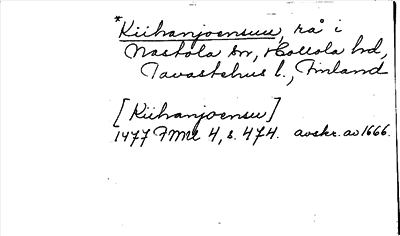 *Kiihanjoensuu, rå i
Nastola sn, Hollola hd,
Tavastehus l., Finland
[Kiihanjoensuu]
1477 FMU 4, s. 474. avskr. av 1666.